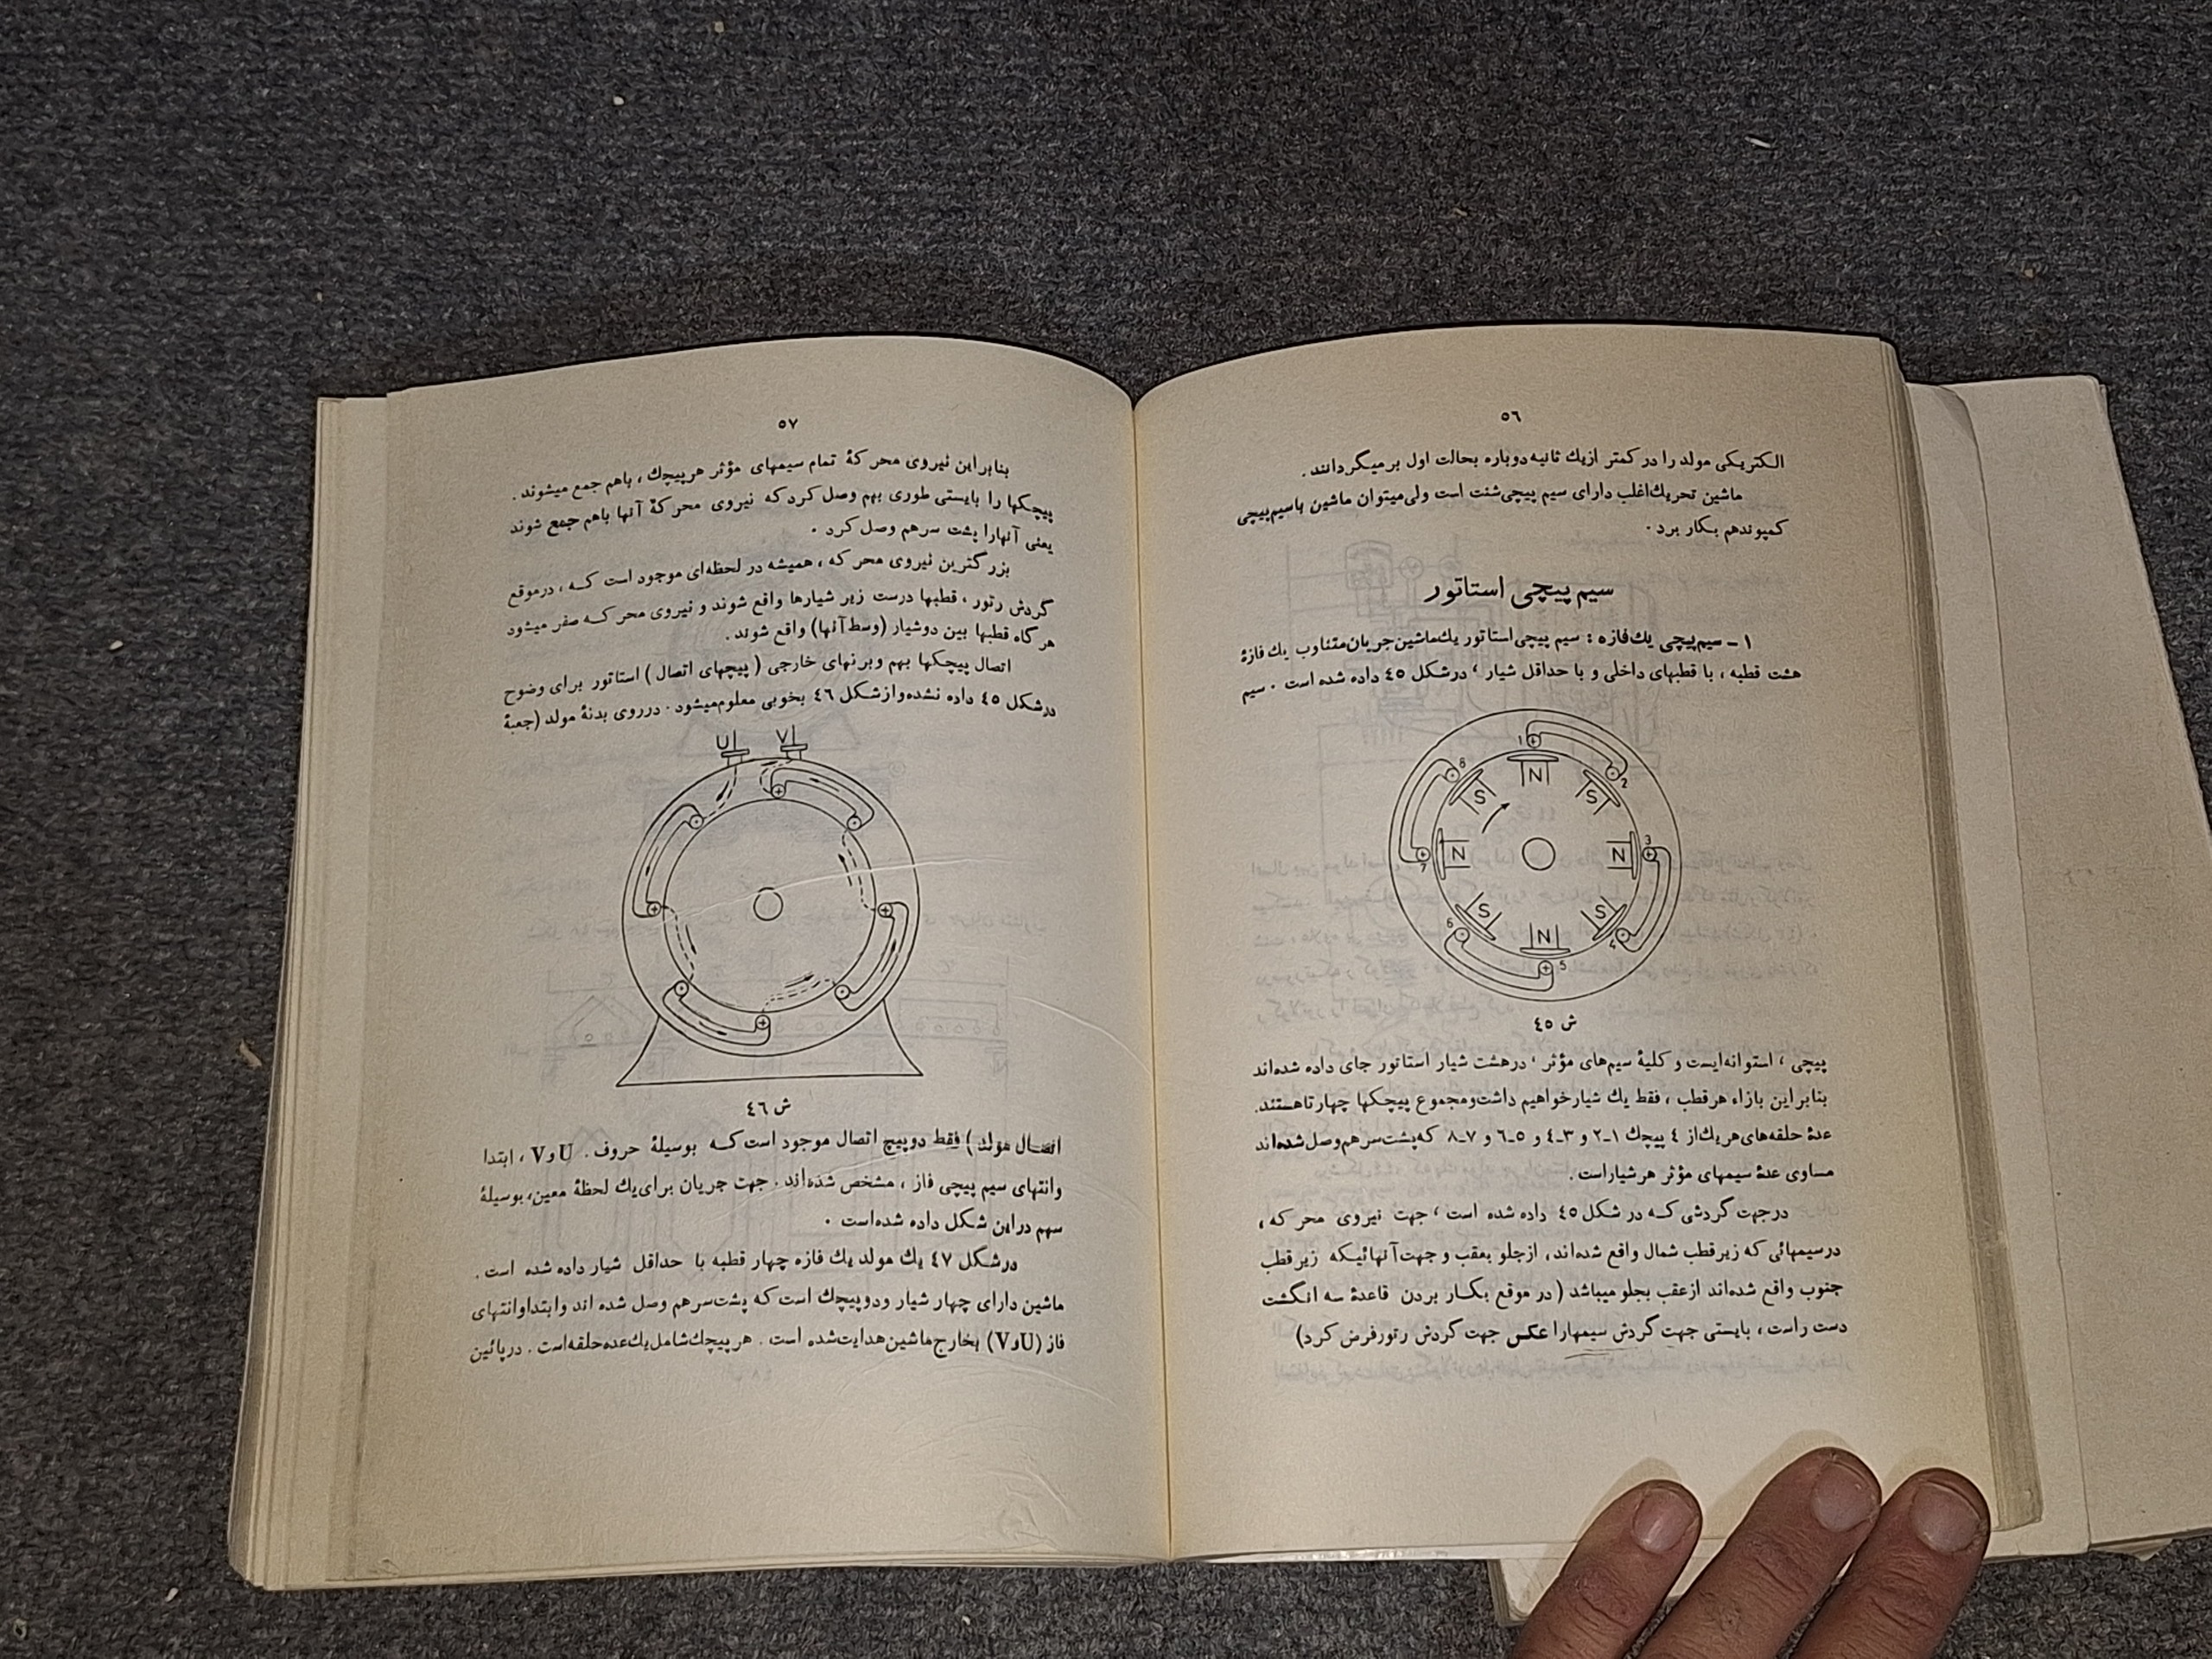 ٥٦
الکتریکی مولد را در کمتر ازیك ثانیه دوباره بحالت اول برمیگردانند .
ماشین تحریك اغلب دارای سیم پیچی شنت است ولی میتوان ماشین باسیم پیچی
کمپوندهم بکار برد .
سیم پیچی استاتور
۱ ـ سیم پیچی یك فازه : سیم پیچی استاتور یك ماشین جریان متناوب یك فازهٔ
هشت قطبه ، با قطبهای داخلی و با حداقل شیار ، درشکل ٤٥ داده شده است . سیم
1
N
2
S
3
N
4
S
5
N
6
S
7
N
8
S
ش ٤٥
پیچی ، استوانه ایست و کلیهٔ سیم های مؤثر ، درهشت شیار استاتور جای داده شده اند
بنابراین بازاء هرقطب ، فقط یك شیار خواهیم داشت ومجموع پیچکها چهارتا هستند.
عدهٔ حلقه های هریك از ٤ پیچك ۱ـ۲ و ۳ـ٤ و ٥ـ٦ و ۷ـ۸ که پشت سر هم وصل شده اند
مساوی عدهٔ سیمهای مؤثر هرشیار است .
درجهت گردشی که در شکل ٤٥ داده شده است ، جهت نیروی محرکه ،
درسیمهائی که زیرقطب شمال واقع شده اند، ازجلو بعقب و جهت آنهائیکه زیرقطب
جنوب واقع شده اند ازعقب بجلو میباشد ( در موقع بکار بردن قاعدهٔ سه انگشت
دست راست ، بایستی جهت گردش سیمها را عکس جهت گردش رتور فرض کرد )
٥٧
بنابراین نیروی محرکهٔ تمام سیمهای مؤثر هرپیچك ، باهم جمع میشوند .
پیچکها را بایستی طوری بهم وصل کرد که نیروی محرکهٔ آنها باهم جمع شوند
یعنی آنهارا پشت سرهم وصل کرد .
بزرگترین نیروی محرکه ، همیشه در لحظه ای موجود است که ، درموقع
گردش رتور ، قطبها درست زیر شیارها واقع شوند و نیروی محرکه صفر میشود
هرگاه قطبها بین دوشیار (وسط آنها) واقع شوند .
اتصال پیچکها بهم وبرنهای خارجی ( پیچهای اتصال ) استاتور برای وضوح
درشکل ٤٥ داده نشده و ازشکل ٤٦ بخوبی معلوم میشود . درروی بدنهٔ مولد (جعبهٔ
U V
ش ٤٦
اتصال مولد ) فقط دوپیچ اتصال موجود است که بوسیلهٔ حروف . U و V ، ابتدا
وانتهای سیم پیچی فاز ، مشخص شده اند . جهت جریان برای یك لحظهٔ معین، بوسیلهٔ
سهم دراین شکل داده شده است .
درشکل ٤٧ یك مولد یك فازه چهار قطبه با حداقل شیار داده شده است .
ماشین دارای چهار شیار ودوپیچك است که پشت سرهم وصل شده اند وابتداوانتهای
فاز (U و V) بخارج ماشین هدایت شده است . هرپیچك شامل یك عده حلقه است . درپائین